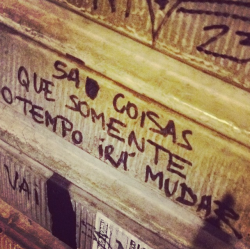 23
SAO COISAS
QUE SOMENTE
O TEMPO IRÁ MUDAR
VAI